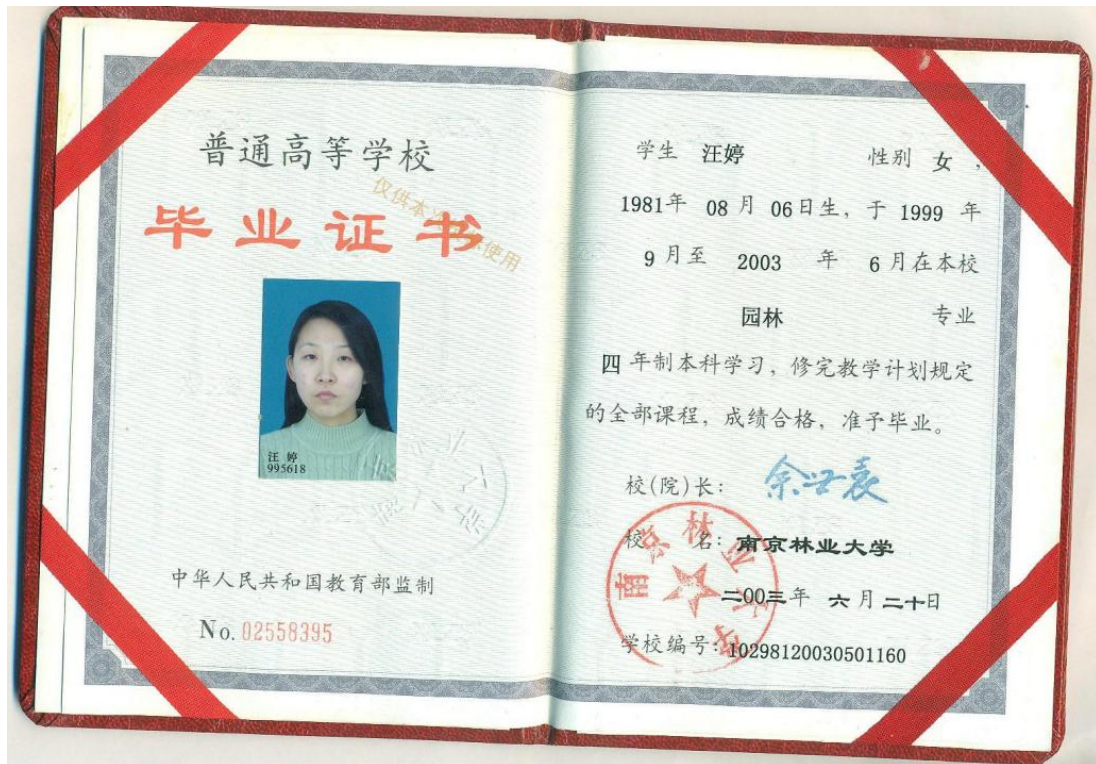 普通高等学校
毕业证书
仅供本次
使用
汪 婷
995618
中华人民共和国教育部监制
No. 02558395
学生 汪婷 性别 女，
1981年 08 月 06日生，于 1999 年
9 月至 2003 年 6 月在本校
园林 专业
四 年制本科学习，修完教学计划规定
的全部课程，成绩合格，准予毕业。
校(院)长：
校 名：南京林业大学
二00三年 六 月 二十日
学校编号：10298120030501160
南京林业大学